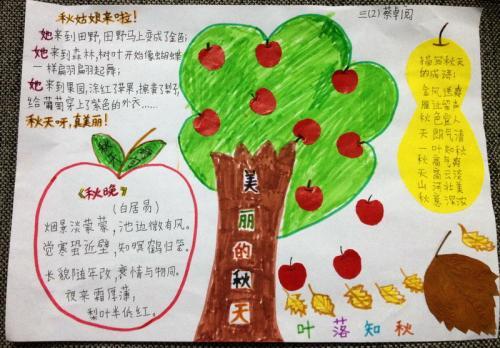 秋姑娘来啦!
她来到田野,田野马上变成了金黄;
她来到森林,树叶开始像蝴蝶
一样翩翩起舞;
她来到果园,涂红了苹果,擦黄了梨子,
给葡萄穿上了紫色的外衣……
秋天呀,真美丽!
三(2)蔡卓
《秋晚》
(白居易)
烟景淡蒙蒙,池边微有风。
觉寒蛩近壁,知暝鹤归笼。
长貌随年改,衰情与物同。
夜来霜厚薄,
梨叶半低红。
美丽的秋天
描写秋天
的成语:
金风送爽
雁过留声
秋色宜人
天朗气清
一叶知秋
秋高气爽
天高云淡
山河壮美
秋意深浓
叶落知秋